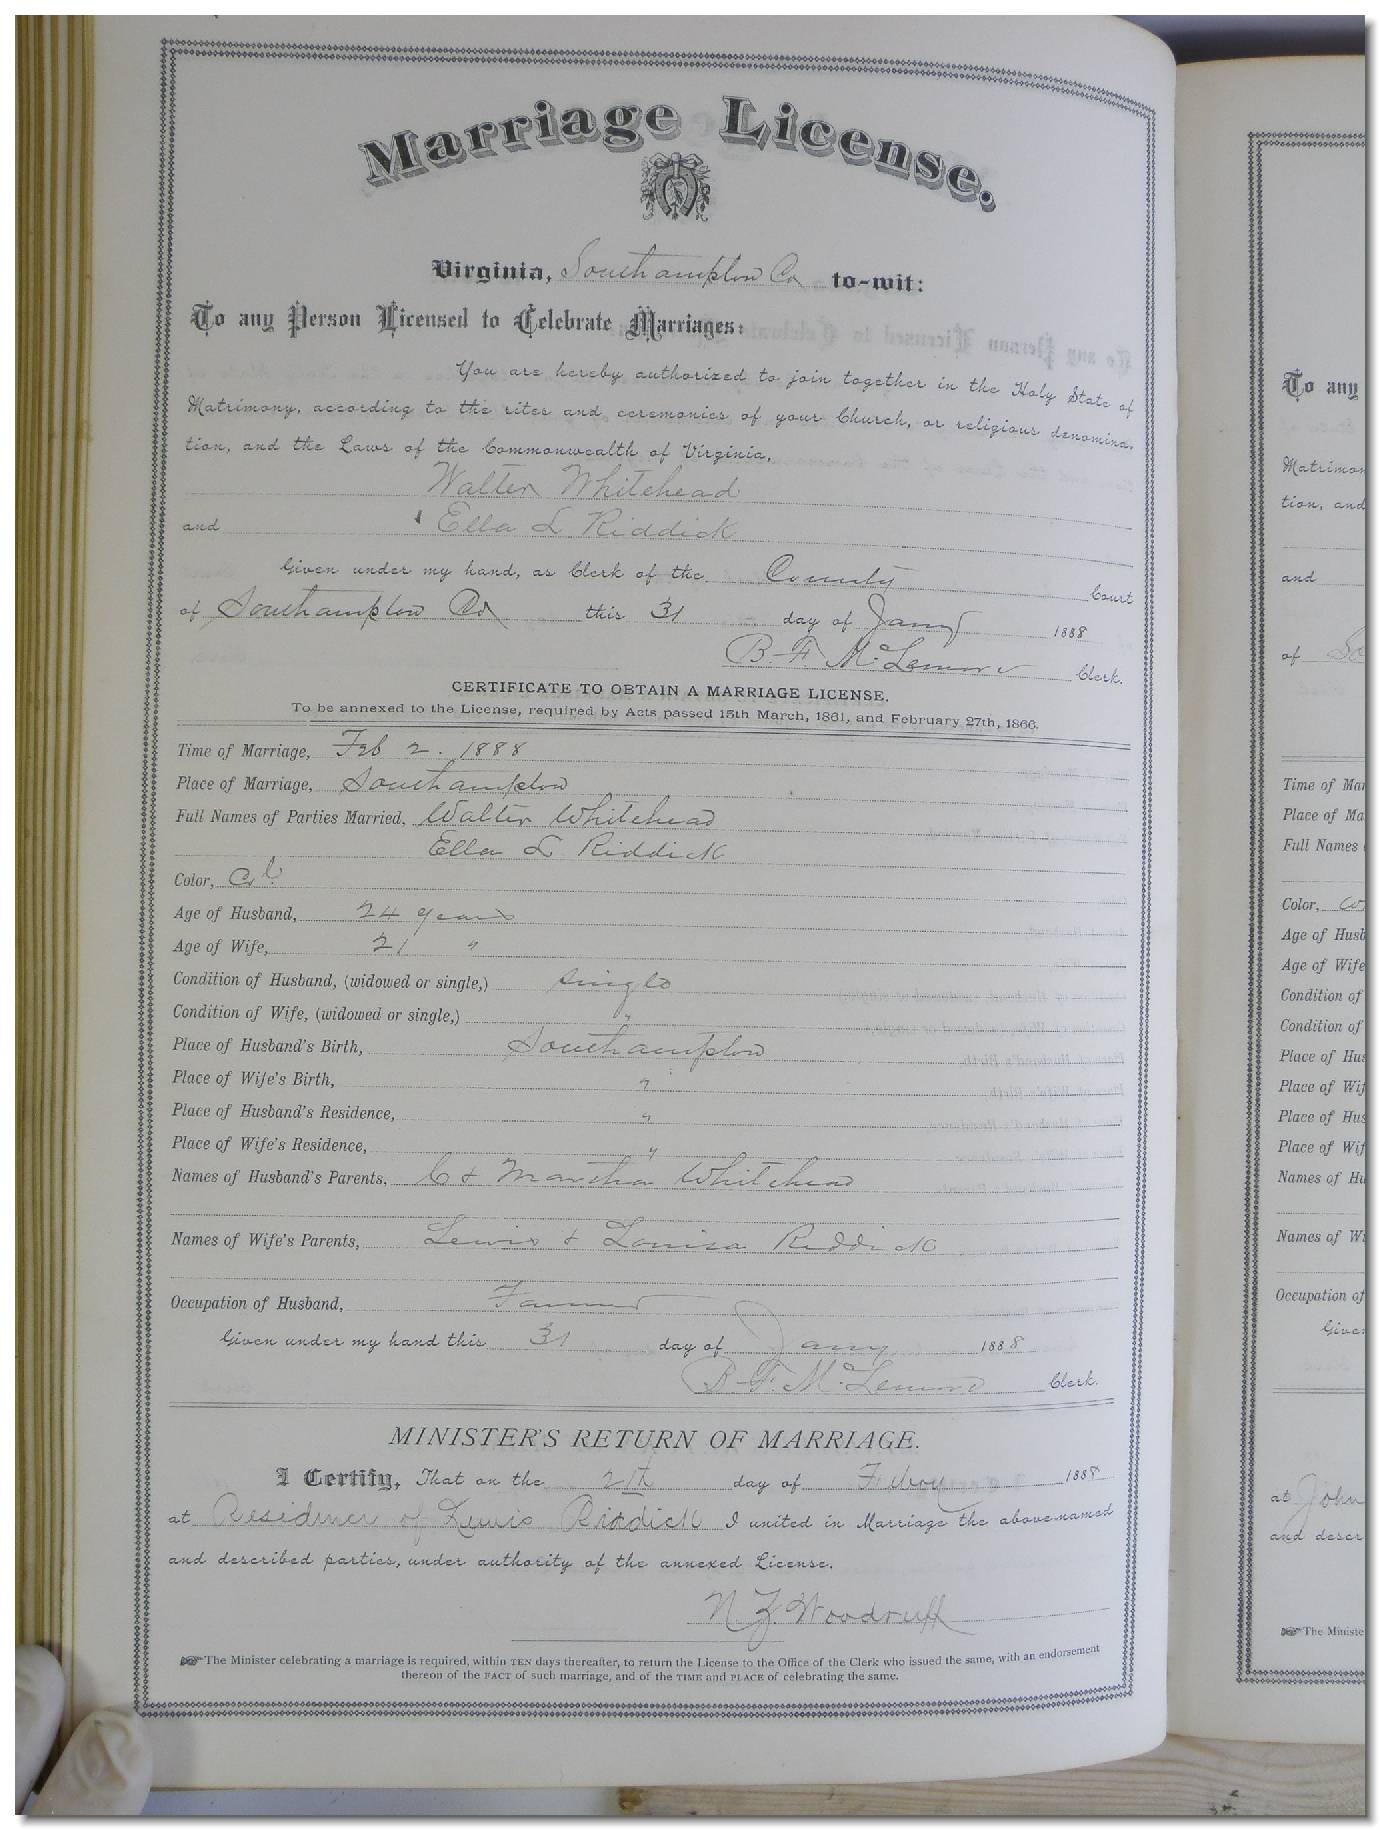 Marriage License.
Virginia, Southampton Co to-wit:
To any Person Licensed to Celebrate Marriages:
You are hereby authorized to join together in the Holy State of
Matrimony, according to the rites and ceremonies of your Church, or religious denomina-
tion, and the Laws of the Commonwealth of Virginia,
Walter Whitehead
and Ella L Riddick
Given under my hand, as Clerk of the County Court
of Southampton Co this 31 day of Jany 1888
B. F. McLemore Clerk.
CERTIFICATE TO OBTAIN A MARRIAGE LICENSE.
To be annexed to the License, required by Acts passed 15th March, 1861, and February 27th, 1866.
Time of Marriage, Feb 2. 1888
Place of Marriage, Southampton
Full Names of Parties Married, Walter Whitehead
Ella L Riddick
Color, Col
Age of Husband, 24 years
Age of Wife, 21 "
Condition of Husband, (widowed or single,) single
Condition of Wife, (widowed or single,) "
Place of Husband's Birth, Southampton
Place of Wife's Birth, "
Place of Husband's Residence, "
Place of Wife's Residence, "
Names of Husband's Parents, C & Martha Whitehead
Names of Wife's Parents, Lewis & Louisa Riddick
Occupation of Husband, Farmer
Given under my hand this 31 day of Jany 1888
B. F. McLemore Clerk.
MINISTER'S RETURN OF MARRIAGE.
I Certify, That on the day of 1888
at Residence of Lewis Riddick I united in Marriage the above-named
and described parties, under authority of the annexed License.
N. Z. Woodruff
☞ The Minister celebrating a marriage is required, within TEN days thereafter, to return the License to the Office of the Clerk who issued the same, with an endorsement
thereon of the FACT of such marriage, and of the TIME and PLACE of celebrating the same.
To any
Matrimon
tion, and
and
of So
Time of Mar
Place of Ma
Full Names
Color,
Age of Husb
Age of Wife
Condition of
Condition of
Place of Hus
Place of Wif
Place of Hus
Place of Wif
Names of Hu
Names of Wi
Occupation of
Given
at John
and descr
☞ The Ministe